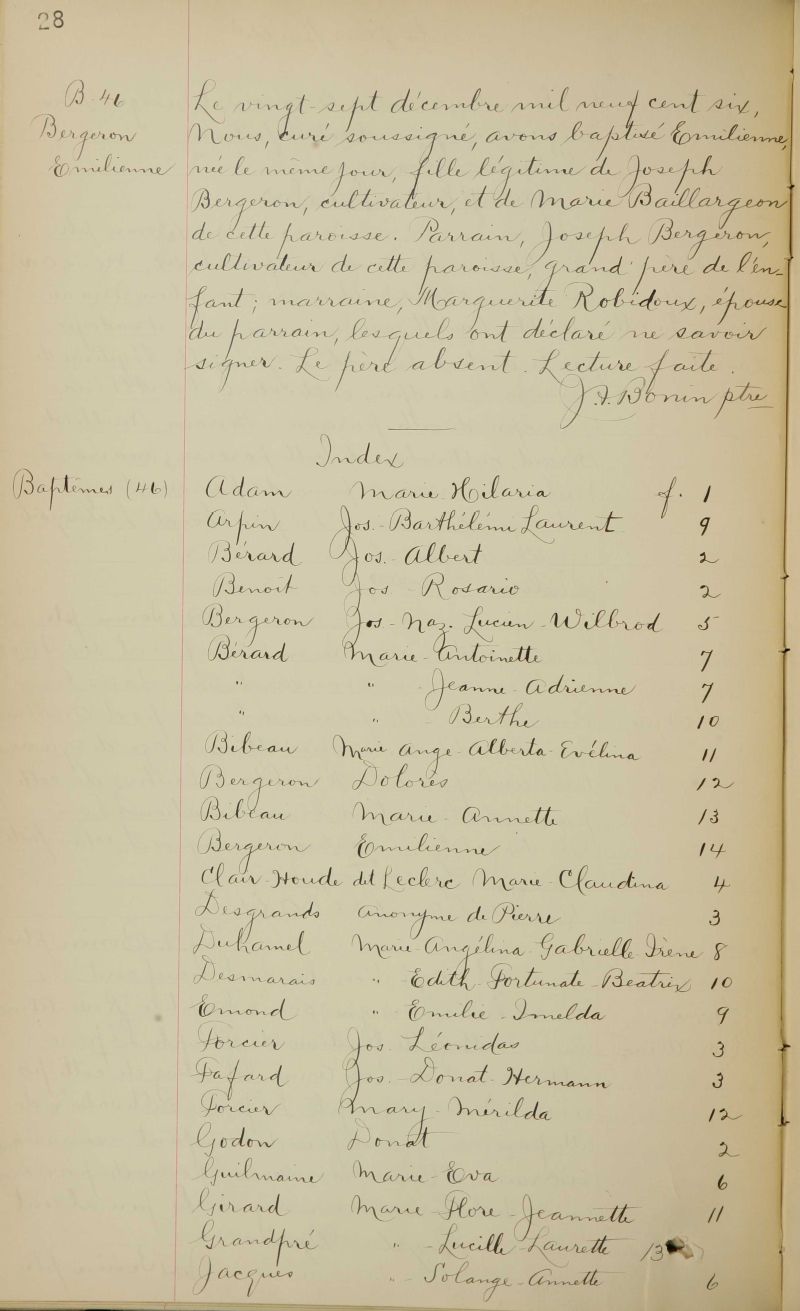 28
B-46
Bergeron
Emilienne
Le vingt-sept décembre mil neuf cent six,
Nous, curé soussigné, avons baptisé Emilienne,
née le même jour, fille légitime de Joseph
Bergeron, cultivateur, et de Marie Baillargeon
de cette paroisse. Parrain, Joseph Bergeron,
cultivateur de cette paroisse, grand père de l'en-
fant; marraine, Marguerite Robidoux, épouse
du parrain, lesquels ont déclaré ne savoir
signer. Le père absent. Lecture faite.
J. A. Bonin ptre
Index
Baptêmes (46)
Adam Marie-Hilaria f. 1
Arpin Jos.-Barthélémi Laurent 9
Bérard Jos.-Albert 2
Benoit Jos Rosario 2
Bergeron Jos-Naz. Lucien-Wilbrod 5
Bérard Marie-Antoinette 7
" " Jeanne-Adrienne 7
" " Berthe 10
Bibeau Marie Ange-Alberta-Evélina 11
Bergeron Dolorès 12
Bibeau Marie-Annette 13
Bergeron Emilienne 14
Clair-Houde dit Leclerc Marie-Claudina 4
Desgrands Anonyme de Pierre 3
Duhamel Marie-Angélina-Gabrielle Irène 8
Desmarais " Edith-Fortunate-Beatrix 10
Emond " Emilie-Imelda 9
Forcier Jos. Léonidas 3
Fafard Jos.-Donat-Hermann 3
Forcier Mary-Mérilda 12
Godon Donat 2
Guilmaine Marie-Eva 6
Girard Marie-Flore-Jeannette 11
Grandpré " -Lucille-Laurette 13
Jacques " Solange-Annette 6